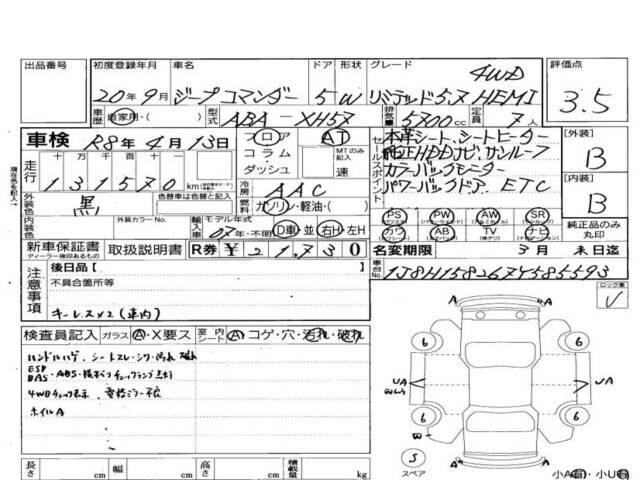 出品番号 初度登録年月 車名 ドア 形状 グレード 評価点
20年9月 ジープ コマンダー 5 W リミテッド5.7 HEMI 4WD 3.5
車歴 自家用・( ) 型式 ABA-XH57 排気量 5700cc 定員 7人
車検 R8年4月13日 フロア コラム・ダッシュ AT MTのみ記入 速
セールスポイント 本革シート、シートヒーター
純正HDDナビ、サンルーフ
カラーバックモニター
パワーバックドア、ETC
[外装] B
[内装] B
走行 十万千百十 131570 km 冷房 AAC
外装色 黒 色替車は色替と記入 燃料 ガソリン・軽油・( )
内装色 外装カラーNo. 輸入車 モデル年式 07年・不明 D車 並 右H 左H
PS PW AW SR
カワ AB TV ナビ 純正品のみ丸印
新車保証書 取扱説明書 R券 ¥21,730 名変期限 3月 末日迄
ディーラー捺印あるもの
車台No. 1J8H158267Y585593
注意事項 後日品[ ]
不具合箇所等
キーレス×2(車内)
ロック車 レ
検査員記入 ガラス A・X要ス 室内シート A コゲ・穴・汚れ・破れ
ハンドルハゲ、シートスレ・シワ・汚れ
ESP
BAS・ABS・チェックランプ点灯
4WDチェック表示
ホイルA
A A
6 6
UA UA
6 6
W
S スペア
A A
長さ cm 幅 cm 高さ cm 積載量 kg
小A有・小U有